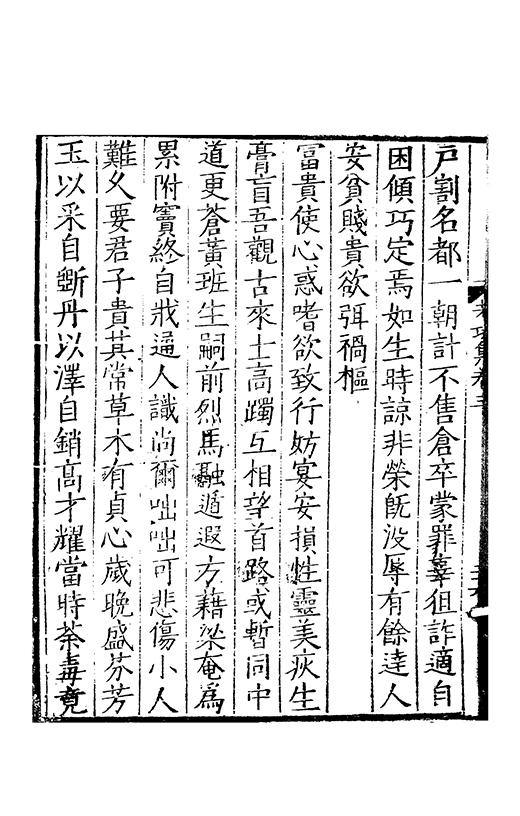 戸割名都一朝計不售倉卒蒙罪辜徂詐適自
困傾巧定焉如生時諒非榮旣没辱有餘達人
安貧賤貴欲弭禍樞
富貴使心惑嗜欲致行妨宴安損性靈美疢生
膏肓吾觀古來士高躅互相望首路或暫同中
道更蒼黃班生嗣前烈馬融遁遐方藉梁奄爲
累附竇終自戕通人識尚爾咄咄可悲傷小人
難久要君子貴其常草木有貞心歲晚盛芬芳
玉以采自斲丹以澤自銷高才耀當時荼毒竟